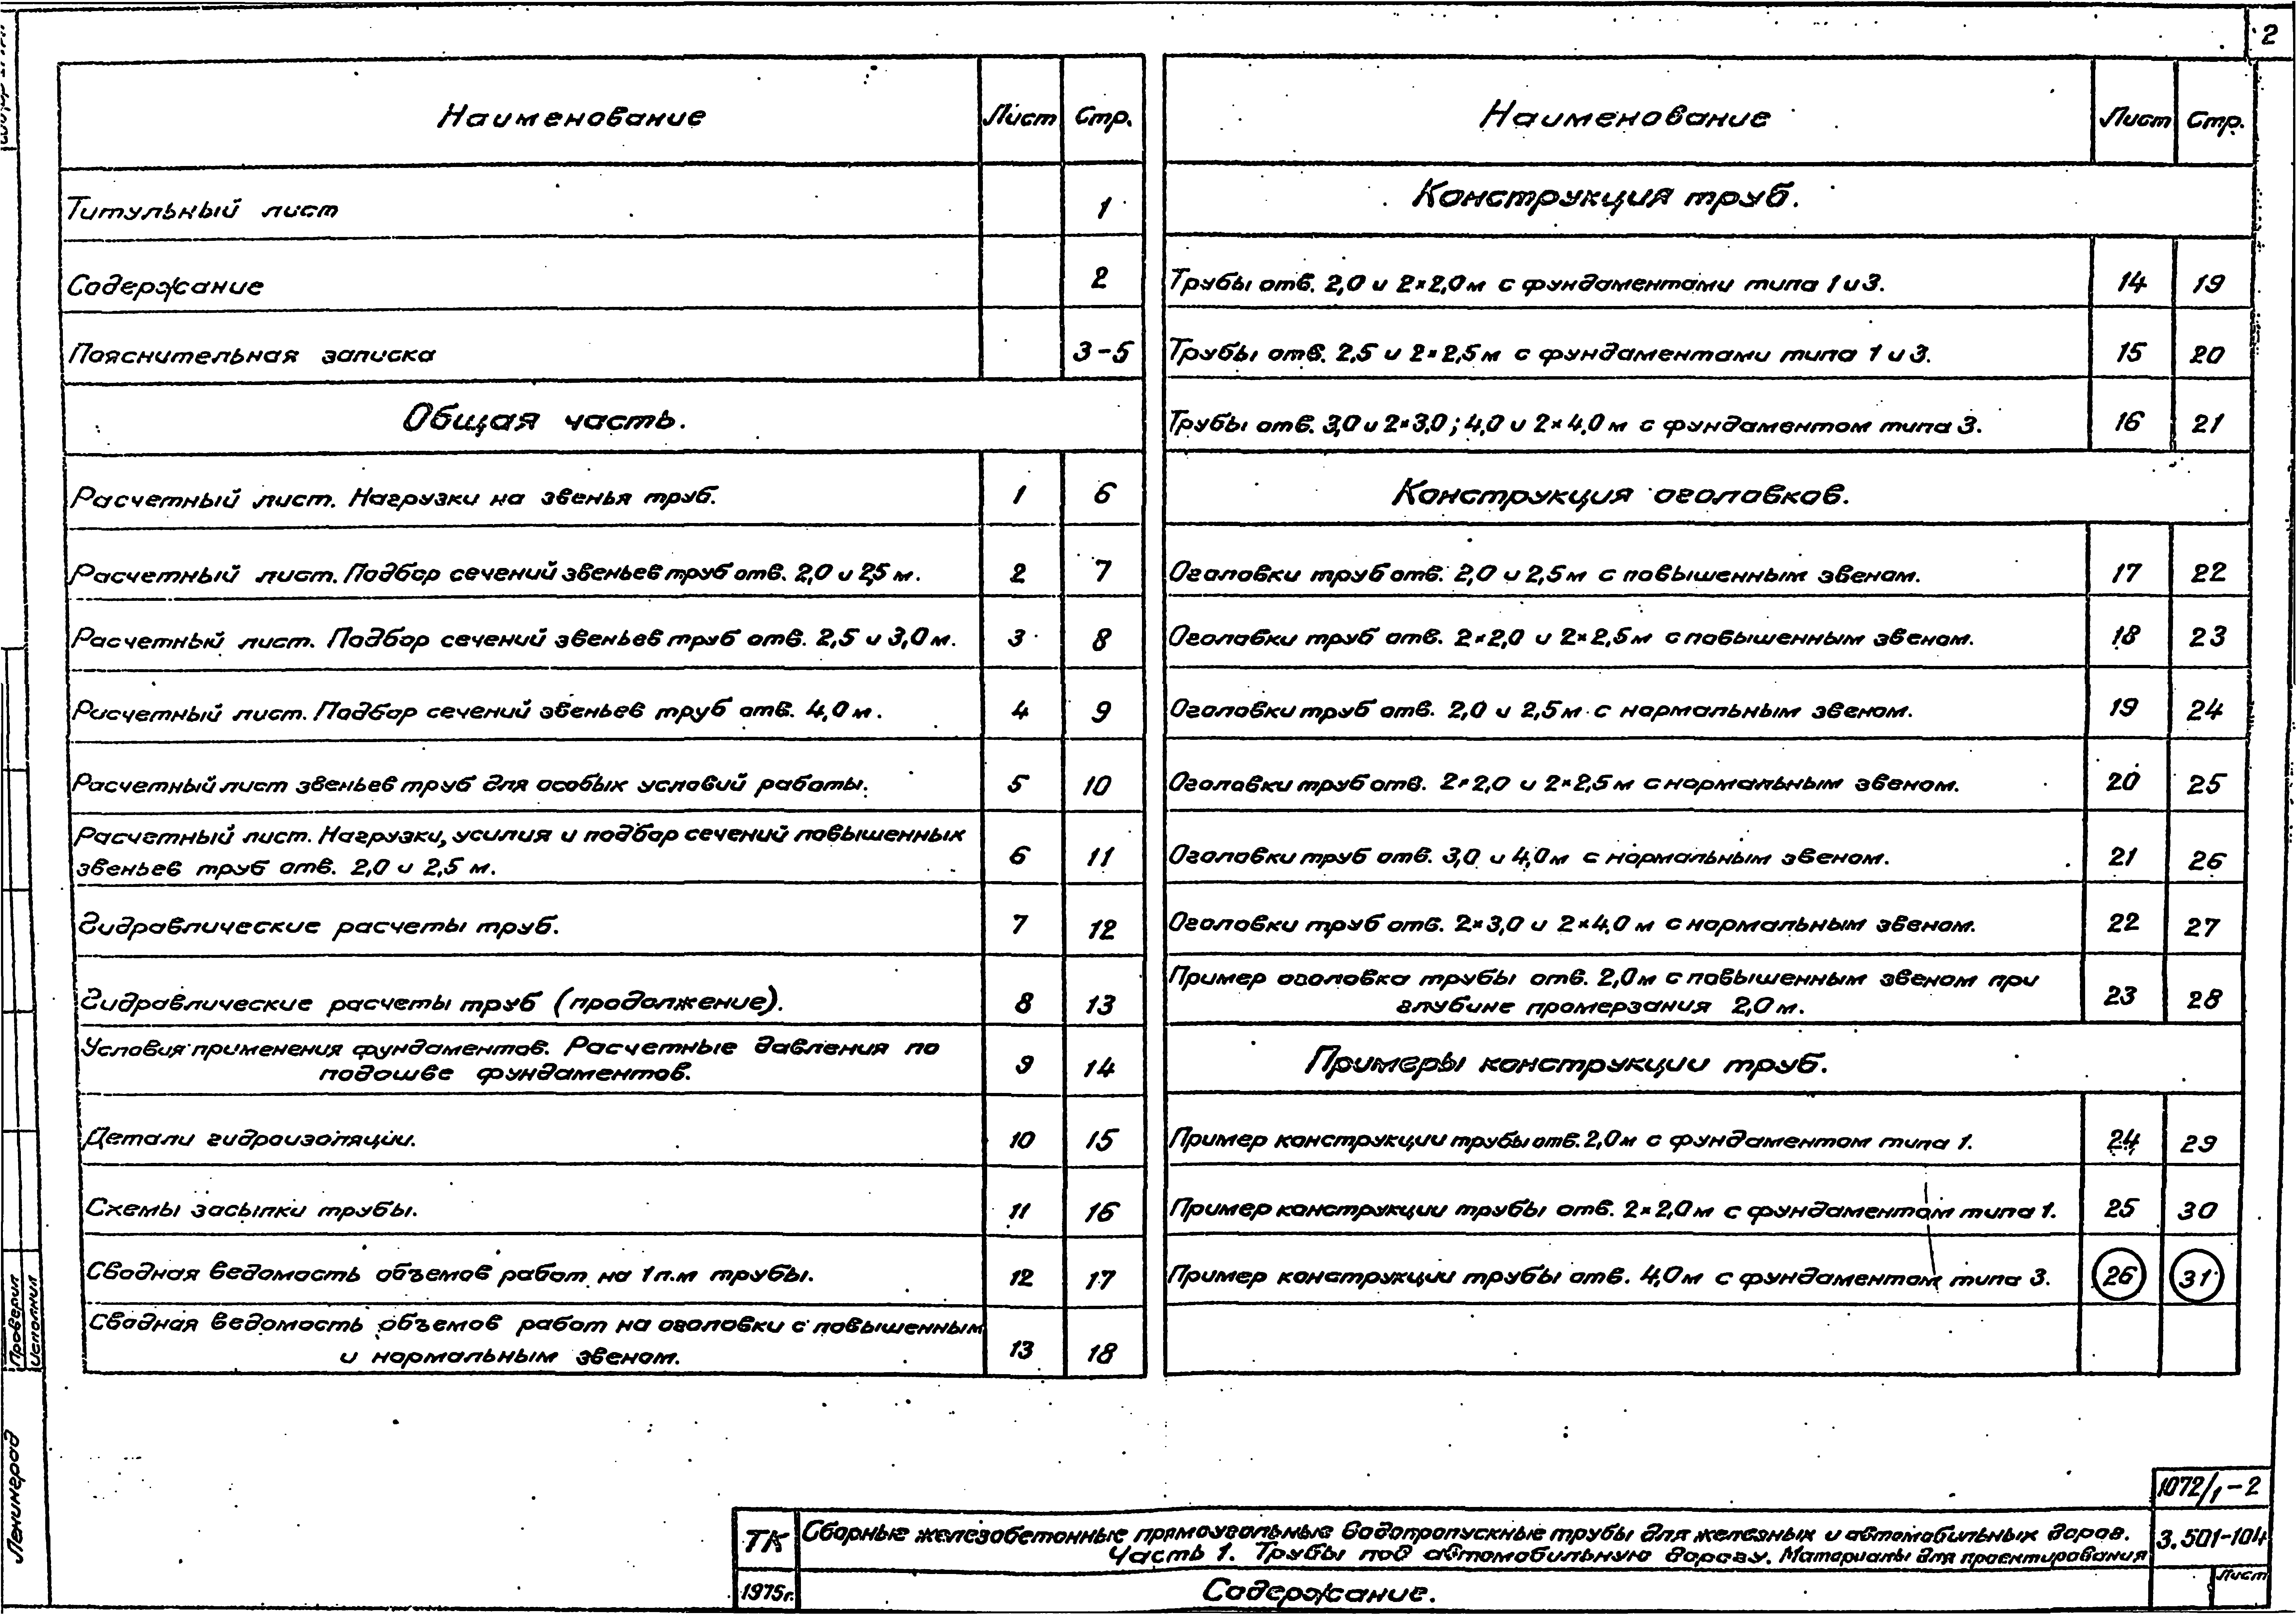 2
Наименование Лист Стр.
Титульный лист 1
Содержание 2
Пояснительная записка 3-5
Общая часть.
Расчетный лист. Нагрузки на звенья труб. 1 6
Расчетный лист. Подбор сечений звеньев труб отв. 2,0 и 2,5 м. 2 7
Расчетный лист. Подбор сечений звеньев труб отв. 2,5 и 3,0 м. 3 8
Расчетный лист. Подбор сечений звеньев труб отв. 4,0 м. 4 9
Расчетный лист звеньев труб для особых условий работы. 5 10
Расчетный лист. Нагрузки, усилия и подбор сечений повышенных
звеньев труб отв. 2,0 и 2,5 м. 6 11
Гидравлические расчеты труб. 7 12
Гидравлические расчеты труб (продолжение). 8 13
Условия применения фундаментов. Расчетные давления по
подошве фундаментов. 9 14
Детали гидроизоляции. 10 15
Схемы засыпки трубы. 11 16
Сводная ведомость объемов работ на 1 п.м трубы. 12 17
Сводная ведомость объемов работ на оголовки с повышенным
и нормальным звеном. 13 18
Наименование Лист Стр.
Конструкция труб.
Трубы отв. 2,0 и 2×2,0 м с фундаментами типа 1 и 3. 14 19
Трубы отв. 2,5 и 2×2,5 м с фундаментами типа 1 и 3. 15 20
Трубы отв. 3,0 и 2×3,0; 4,0 и 2×4,0 м с фундаментом типа 3. 16 21
Конструкция оголовков.
Оголовки труб отв. 2,0 и 2,5 м с повышенным звеном. 17 22
Оголовки труб отв. 2×2,0 и 2×2,5 м с повышенным звеном. 18 23
Оголовки труб отв. 2,0 и 2,5 м с нормальным звеном. 19 24
Оголовки труб отв. 2×2,0 и 2×2,5 м с нормальным звеном. 20 25
Оголовки труб отв. 3,0 и 4,0 м с нормальным звеном. 21 26
Оголовки труб отв. 2×3,0 и 2×4,0 м с нормальным звеном. 22 27
Пример оголовка трубы отв. 2,0 м с повышенным звеном при
глубине промерзания 2,0 м. 23 28
Примеры конструкции труб.
Пример конструкции трубы отв. 2,0 м с фундаментом типа 1. 24 29
Пример конструкции трубы отв. 2×2,0 м с фундаментом типа 1. 25 30
Пример конструкции трубы отв. 4,0 м с фундаментом типа 3. 26 31
Проверил
Исполнил
Ленинград
1072/1-2
ТК Сборные железобетонные прямоугольные водопропускные трубы для железных и автомобильных дорог.
Часть 1. Трубы под автомобильную дорогу. Материалы для проектирования 3.501-104
1975г. Содержание. Лист